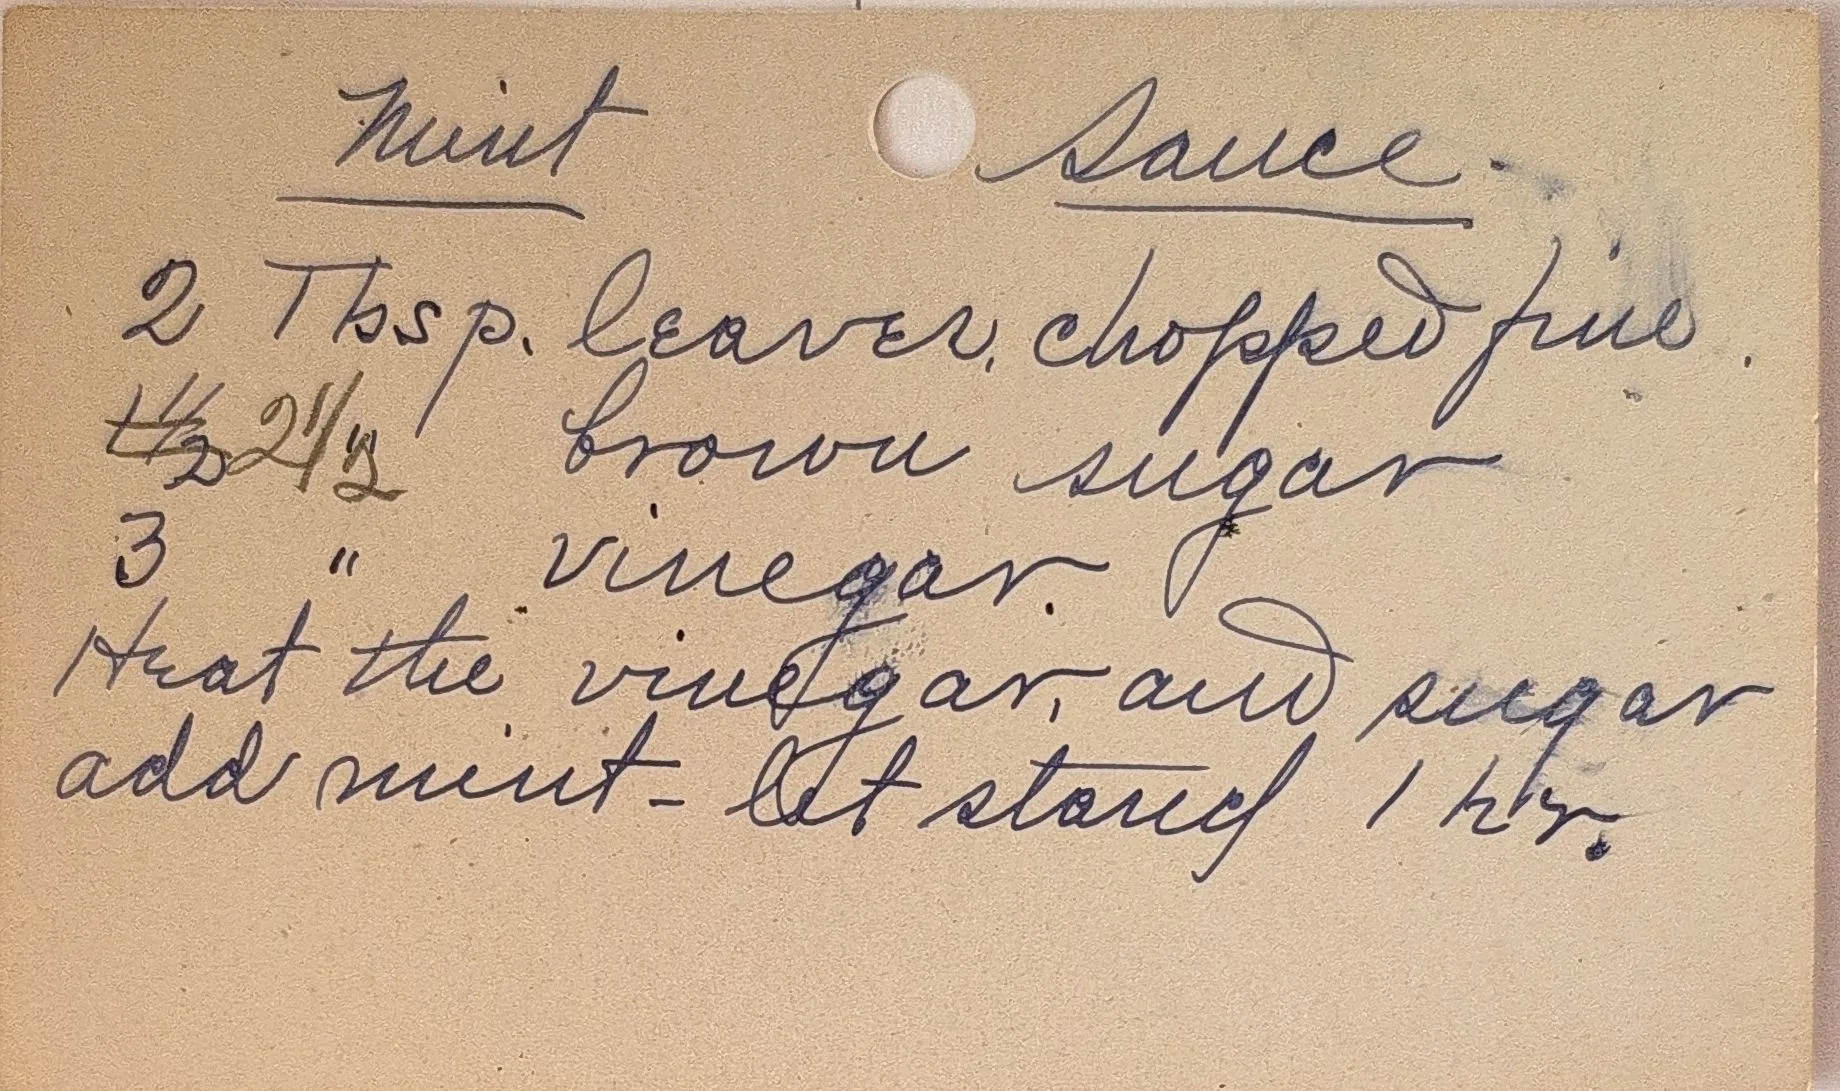 Mint Sauce.
2 Tbsp. leaves, chopped fine.
1 1/2 2 1/2 " brown sugar
3 " vinegar.
Heat the vinegar, and sugar
add mint - let stand 1 hr.